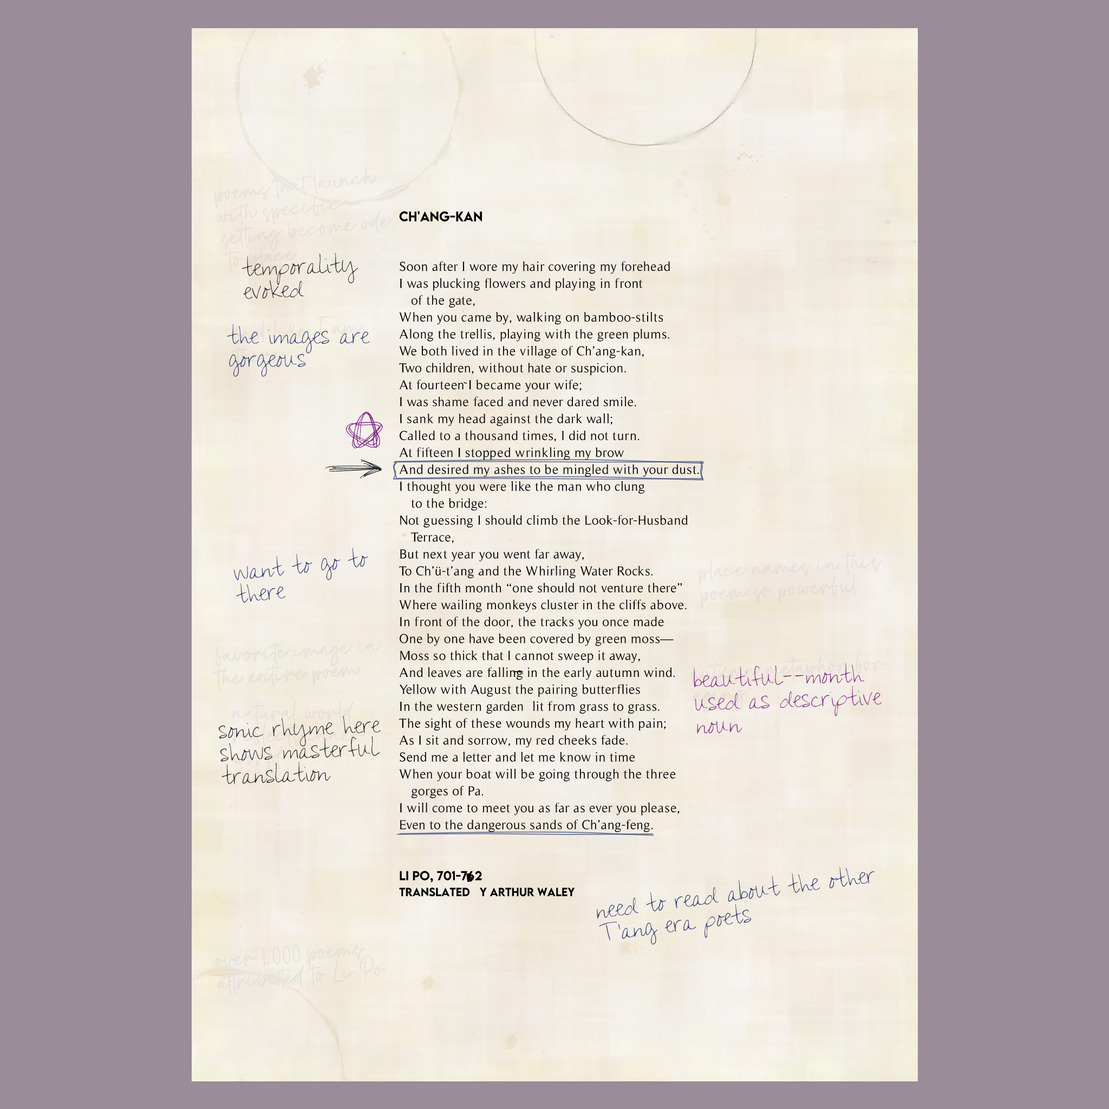 poems that launch
with specific
setting become ode
to place
CH'ANG-KAN
temporality
evoked
the images are
gorgeous
Soon after I wore my hair covering my forehead
I was plucking flowers and playing in front
of the gate,
When you came by, walking on bamboo-stilts
Along the trellis, playing with the green plums.
We both lived in the village of Ch'ang-kan,
Two children, without hate or suspicion.
At fourteen I became your wife;
I was shame faced and never dared smile.
I sank my head against the dark wall;
Called to a thousand times, I did not turn.
At fifteen I stopped wrinkling my brow
And desired my ashes to be mingled with your dust.
I thought you were like the man who clung
to the bridge:
Not guessing I should climb the Look-for-Husband
Terrace,
But next year you went far away,
To Ch'ü-t'ang and the Whirling Water Rocks.
In the fifth month “one should not venture there”
Where wailing monkeys cluster in the cliffs above.
In front of the door, the tracks you once made
One by one have been covered by green moss—
Moss so thick that I cannot sweep it away,
And leaves are falling in the early autumn wind.
Yellow with August the pairing butterflies
In the western garden lit from grass to grass.
The sight of these wounds my heart with pain;
As I sit and sorrow, my red cheeks fade.
Send me a letter and let me know in time
When your boat will be going through the three
gorges of Pa.
I will come to meet you as far as ever you please,
Even to the dangerous sands of Ch'ang-feng.
want to go to
there
place names in this
poem so powerful
favorite image in
the entire poem
natural world
sonic rhyme here
shows masterful
translation
metaphor for
beautiful--month
used as descriptive
noun
LI PO, 701-762
TRANSLATED Y ARTHUR WALEY
need to read about the other
T'ang era poets
over 1,000 poems
attributed to Li Po